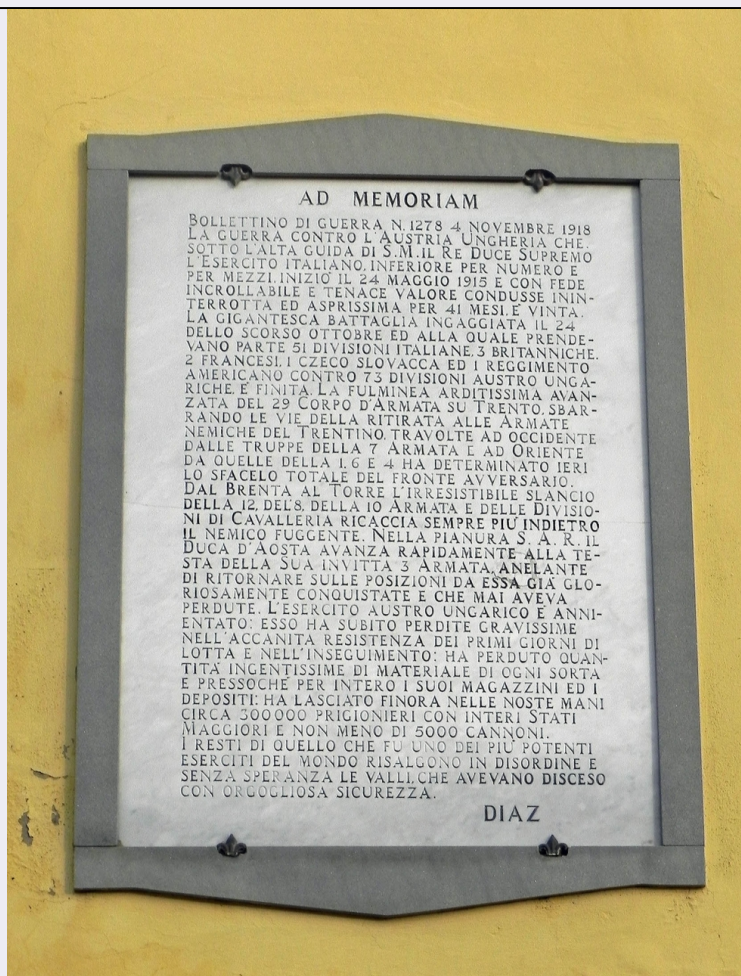 AD MEMORIAM
BOLLETTINO DI GUERRA N. 1278 4 NOVEMBRE 1918
LA GUERRA CONTRO L'AUSTRIA UNGHERIA CHE.
SOTTO L'ALTA GUIDA DI S.M. IL RE DUCE SUPREMO
L'ESERCITO ITALIANO, INFERIORE PER NUMERO E
PER MEZZI, INIZIO' IL 24 MAGGIO 1915 E CON FEDE
INCROLLABILE E TENACE VALORE CONDUSSE ININ-
TERROTTA ED ASPRISSIMA PER 41 MESI, E' VINTA.
LA GIGANTESCA BATTAGLIA INGAGGIATA IL 24
DELLO SCORSO OTTOBRE ED ALLA QUALE PRENDE-
VANO PARTE 51 DIVISIONI ITALIANE, 3 BRITANNICHE,
2 FRANCESI, 1 CZECO SLOVACCA ED 1 REGGIMENTO
AMERICANO CONTRO 73 DIVISIONI AUSTRO UNGA-
RICHE, E' FINITA. LA FULMINEA ARDITISSIMA AVAN-
ZATA DEL 29 CORPO D'ARMATA SU TRENTO, SBAR-
RANDO LE VIE DELLA RITIRATA ALLE ARMATE
NEMICHE DEL TRENTINO, TRAVOLTE AD OCCIDENTE
DALLE TRUPPE DELLA 7 ARMATA E AD ORIENTE
DA QUELLE DELLA 1, 6 E 4 HA DETERMINATO IERI
LO SFACELO TOTALE DEL FRONTE AVVERSARIO.
DAL BRENTA AL TORRE L'IRRESISTIBILE SLANCIO
DELLA 12, DEL'8, DELLA 10 ARMATA E DELLE DIVISIO-
NI DI CAVALLERIA RICACCIA SEMPRE PIU' INDIETRO
IL NEMICO FUGGENTE. NELLA PIANURA S. A. R. IL
DUCA D'AOSTA AVANZA RAPIDAMENTE ALLA TE-
STA DELLA SUA INVITTA 3 ARMATA, ANELANTE
DI RITORNARE SULLE POSIZIONI DA ESSA GIA' GLO-
RIOSAMENTE CONQUISTATE E CHE MAI AVEVA
PERDUTE. L'ESERCITO AUSTRO UNGARICO E' ANNI-
ENTATO: ESSO HA SUBITO PERDITE GRAVISSIME
NELL'ACCANITA RESISTENZA DEI PRIMI GIORNI DI
LOTTA E NELL'INSEGUIMENTO: HA PERDUTO QUAN-
TITA' INGENTISSIME DI MATERIALE DI OGNI SORTA
E PRESSOCHE' PER INTERO I SUOI MAGAZZINI ED I
DEPOSITI: HA LASCIATO FINORA NELLE NOSTE MANI
CIRCA 300000 PRIGIONIERI CON INTERI STATI
MAGGIORI E NON MENO DI 5000 CANNONI.
I RESTI DI QUELLO CHE FU UNO DEI PIU' POTENTI
ESERCITI DEL MONDO RISALGONO IN DISORDINE E
SENZA SPERANZA LE VALLI, CHE AVEVANO DISCESO
CON ORGOGLIOSA SICUREZZA.
DIAZ